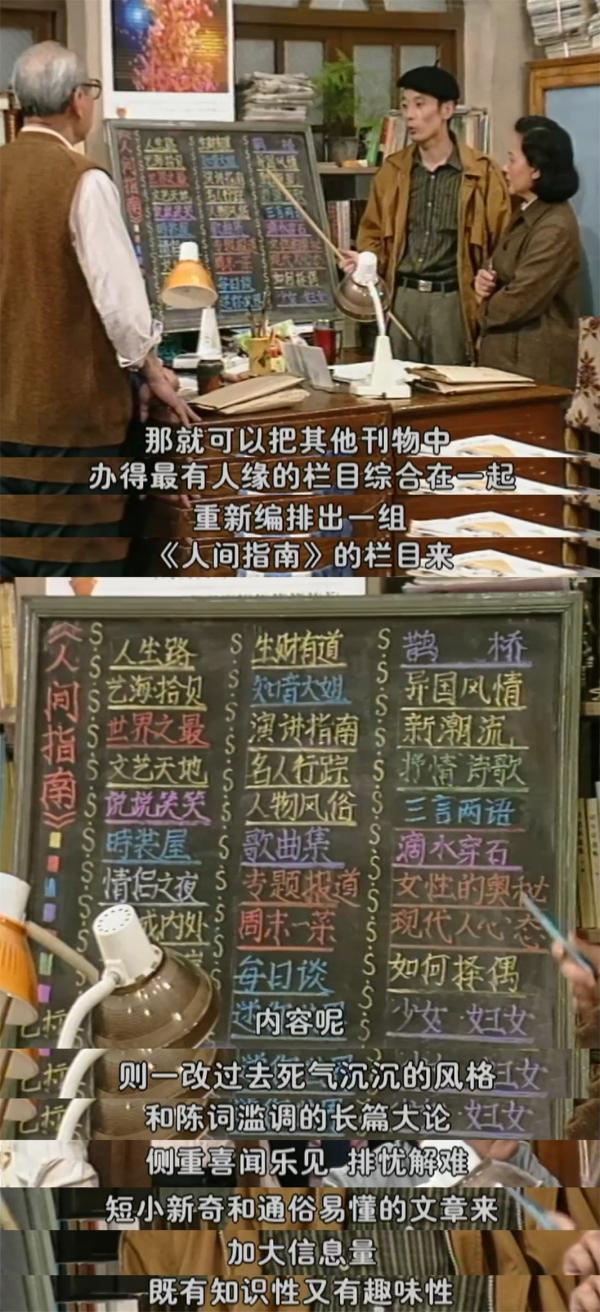 那就可以把其他刊物中
办得最有人缘的栏目综合在一起
重新编排出一组
《人间指南》的栏目来
《人间指南》
人生路
艺海拾贝
世界之最
文艺天地
说说笑笑
時装屋
情侣之夜
城内外
生财有道
知音大姐
演讲指南
名人行踪
人物风俗
歌曲集
专题报道
周末一菜
每日谈
鹊桥
异国风情
新潮流
抒情诗歌
三言两语
滴水穿石
女性的奥秘
现代人心态
如何择偶
少女·妇女
内容呢
则一改过去死气沉沉的风格
和陈词滥调的长篇大论
侧重喜闻乐见 排忧解难
短小新奇和通俗易懂的文章来
加大信息量
既有知识性又有趣味性